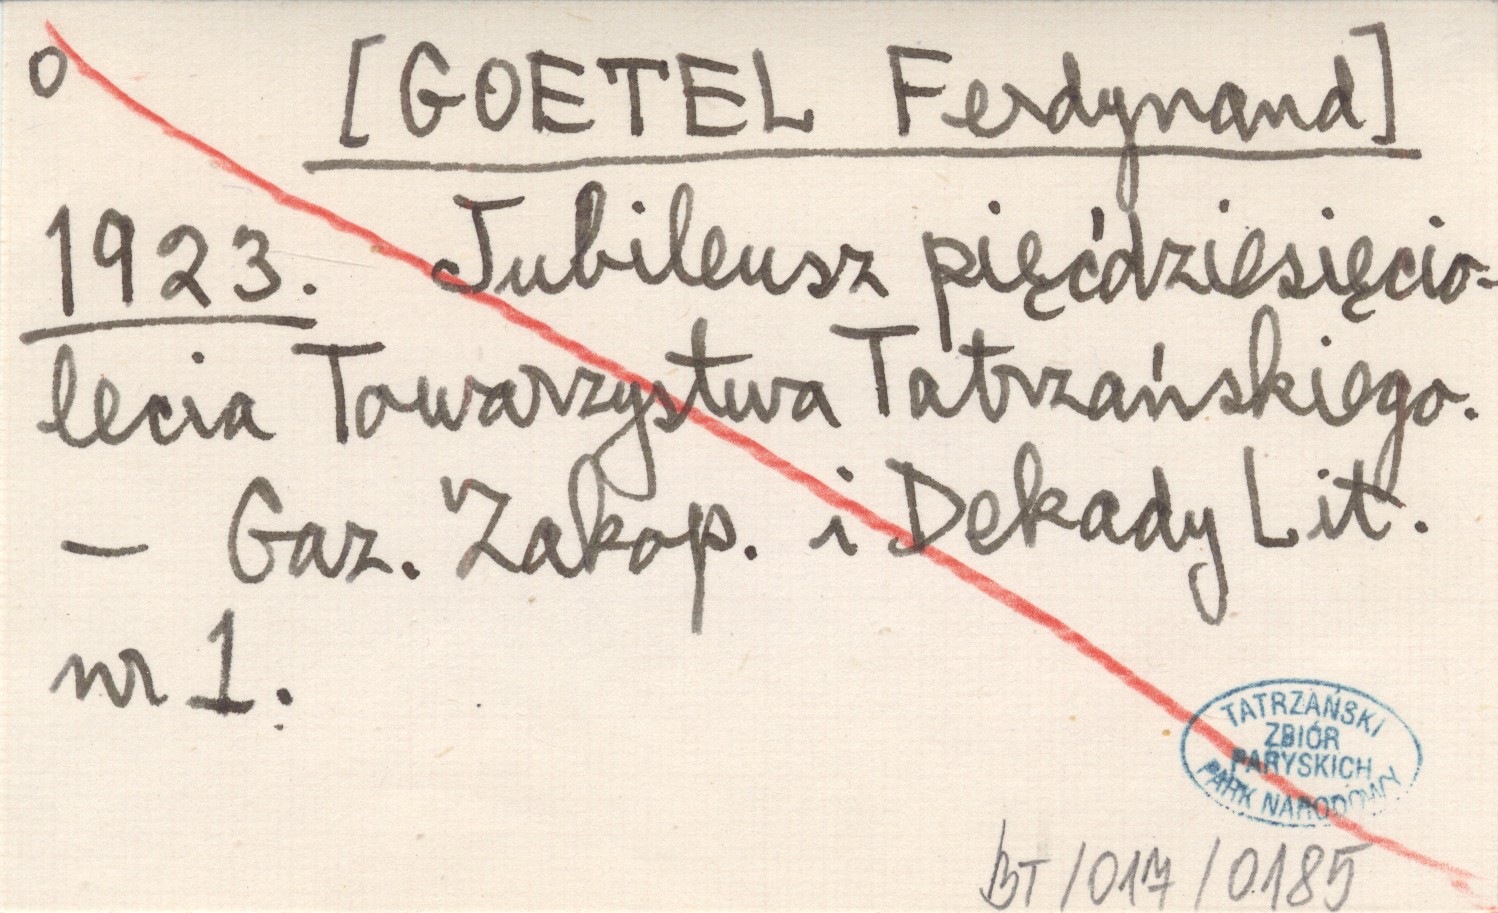 o [GOETEL Ferdynand]
1923. Jubileusz pięćdziesięcio-
lecia Towarzystwa Tatrzańskiego.
— Gaz. Zakop. i Dekady Lit.
nr 1.
TATRZAŃSKI
ZBIÓR
PARYSKICH
PARK NARODOWY
BT/017/0185